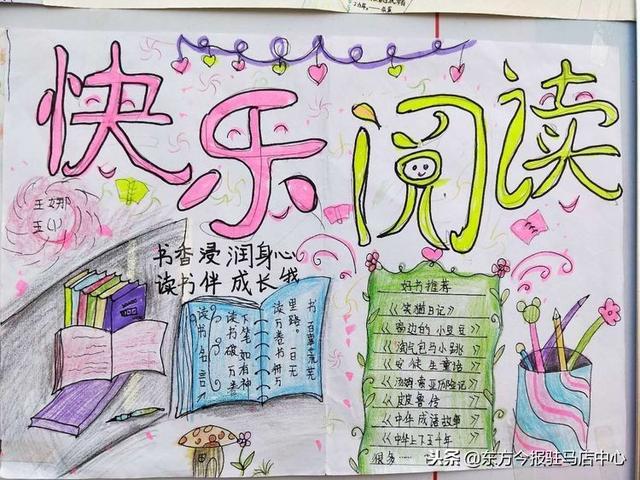 快乐阅读
王娜
五(1)
书香浸润身心
读书伴成长我
读书名言:
读书破万卷
下笔如有神
读万卷书行万
里路。一日无
书,百事荒芜
好书推荐
《笑猫日记》
《窗边的小豆豆》
《淘气包马小跳》
《安徒生童话》
《汤姆索亚历险记》
《皮皮鲁传》
《中华成语故事》
《中华上下五千年》
很多……
头条 @东方今报驻马店中心